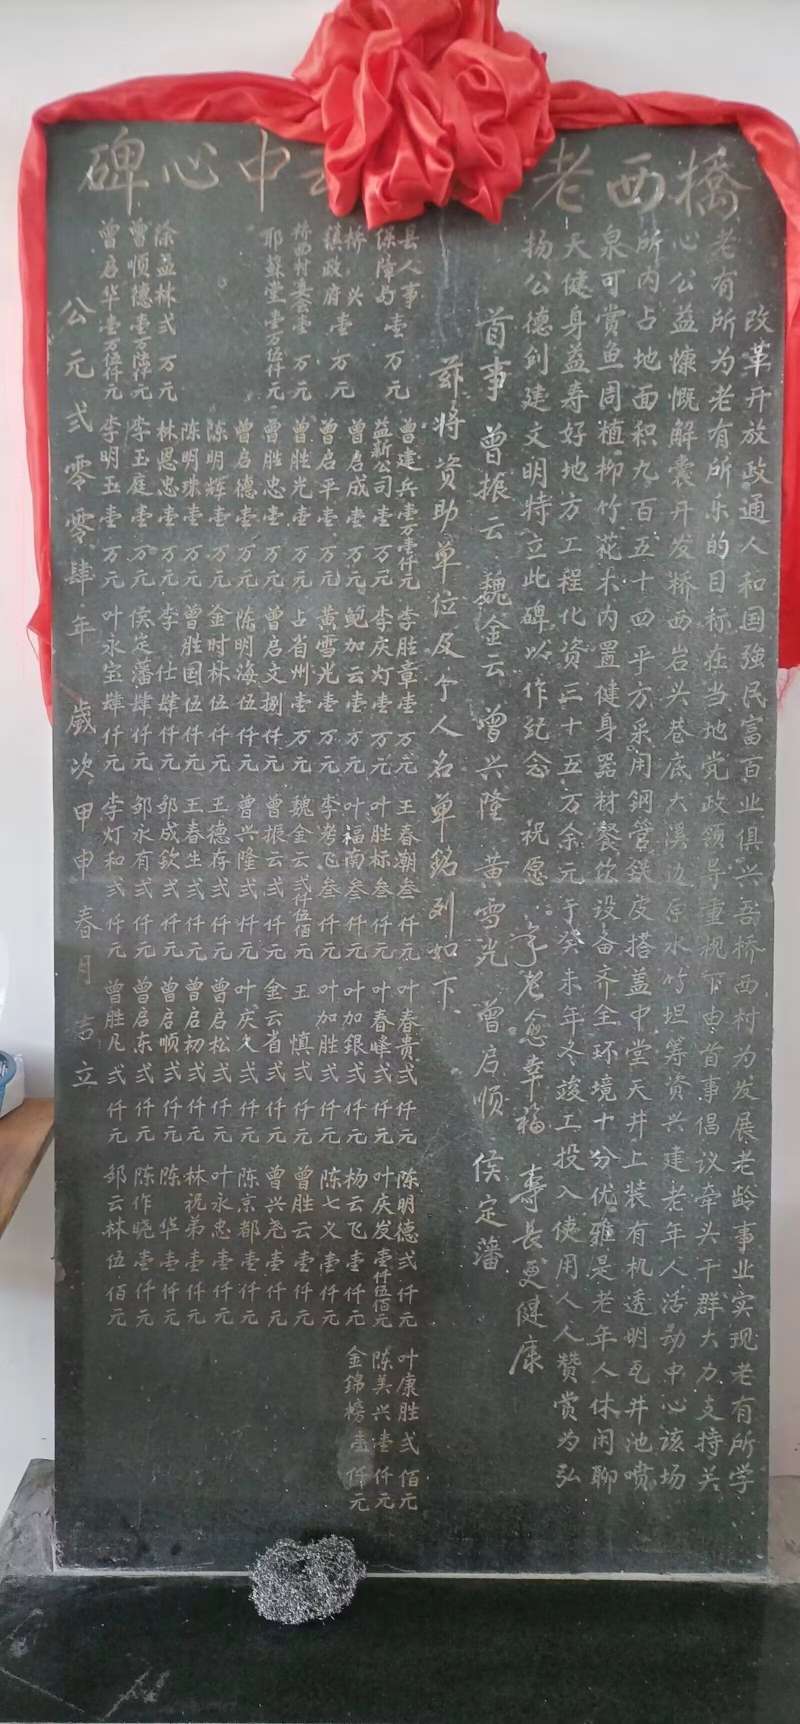 橋西老
中心碑
改革开放政通人和国强民富百业俱兴吾桥西村为发展老龄事业实现老有所学
老有所为老有所乐的目标在当地党政领导重视下由首事倡议牵头干群大力支持关
心公益慷慨解囊开发桥西岩头巷底大溪边原水笃坦筹资兴建老年人活动中心该场
所内占地面积九百五十四平方采用钢管铁皮搭盖中堂天井上装有机透明瓦井池喷
泉可赏鱼周植柳竹花木内置健身器材餐饮设备齐全环境十分优雅是老年人休闲聊
天健身益寿好地方工程化资三十五万余元于癸未年冬竣工投入使用人人赞赏为弘
扬公德创建文明特立此碑以作纪念 祝愿:学老愈幸福 寿长更健康
首事 曾振云 魏金云 曾兴隆 黄雪光 曾启顺 侯定藩
兹将资助单位及个人名单铭列如下
县人事 曾建兵壹万壹仟元 李胜章壹万元 王春潮叁仟元 叶春贵弍仟元 陈明德弍仟元 叶康胜弍佰元
保障局壹万元 益新公司壹万元 李庆灯壹万元 叶胜标叁仟元 叶春峰弍仟元 叶庆发壹仟伍佰元 陈美兴壹仟元
桥兴壹万元 曾启成壹万元 鲍加云壹万元 叶福南叁仟元 叶加银弍仟元 杨云飞壹仟元 金锦榜壹仟元
镇政府壹万元 曾启平壹万元 黄雪光壹万元 李考飞叁仟元 叶加胜弍仟元 陈七义壹仟元
桥西村基会壹万元 曾胜光壹万元 占省州壹万元 魏金云弍仟伍佰元 王慎弍仟元 曾胜云壹仟元
耶稣堂壹万伍仟元 曾胜忠壹万元 曾启文捌仟元 曾振云弍仟元 金云省弍仟元 曾兴尧壹仟元
曾启德壹万元 陈明海伍仟元 曾兴隆弍仟元 叶庆久弍仟元 陈京都壹仟元
陈明辉壹万元 金时林伍仟元 王德存弍仟元 曾启松弍仟元 叶永忠壹仟元
陈明珠壹万元 曾胜国伍仟元 王春生弍仟元 曾启初弍仟元 林祝弟壹仟元
徐益林弍万元 林恩忠壹万元 李仕肆仟元 邹成钦弍仟元 曾启顺弍仟元 陈华壹仟元
曾顺德壹万陆仟元 李玉庭壹万元 侯定藩肆仟元 邹永有弍仟元 曾启东弍仟元 陈作晓壹仟元
曾启华壹万伍仟元 李明玉壹万元 叶永宝肆仟元 李灯和弍仟元 曾胜凡弍仟元 邹云林伍佰元
公元弍零零肆年 歲次甲申春月吉立